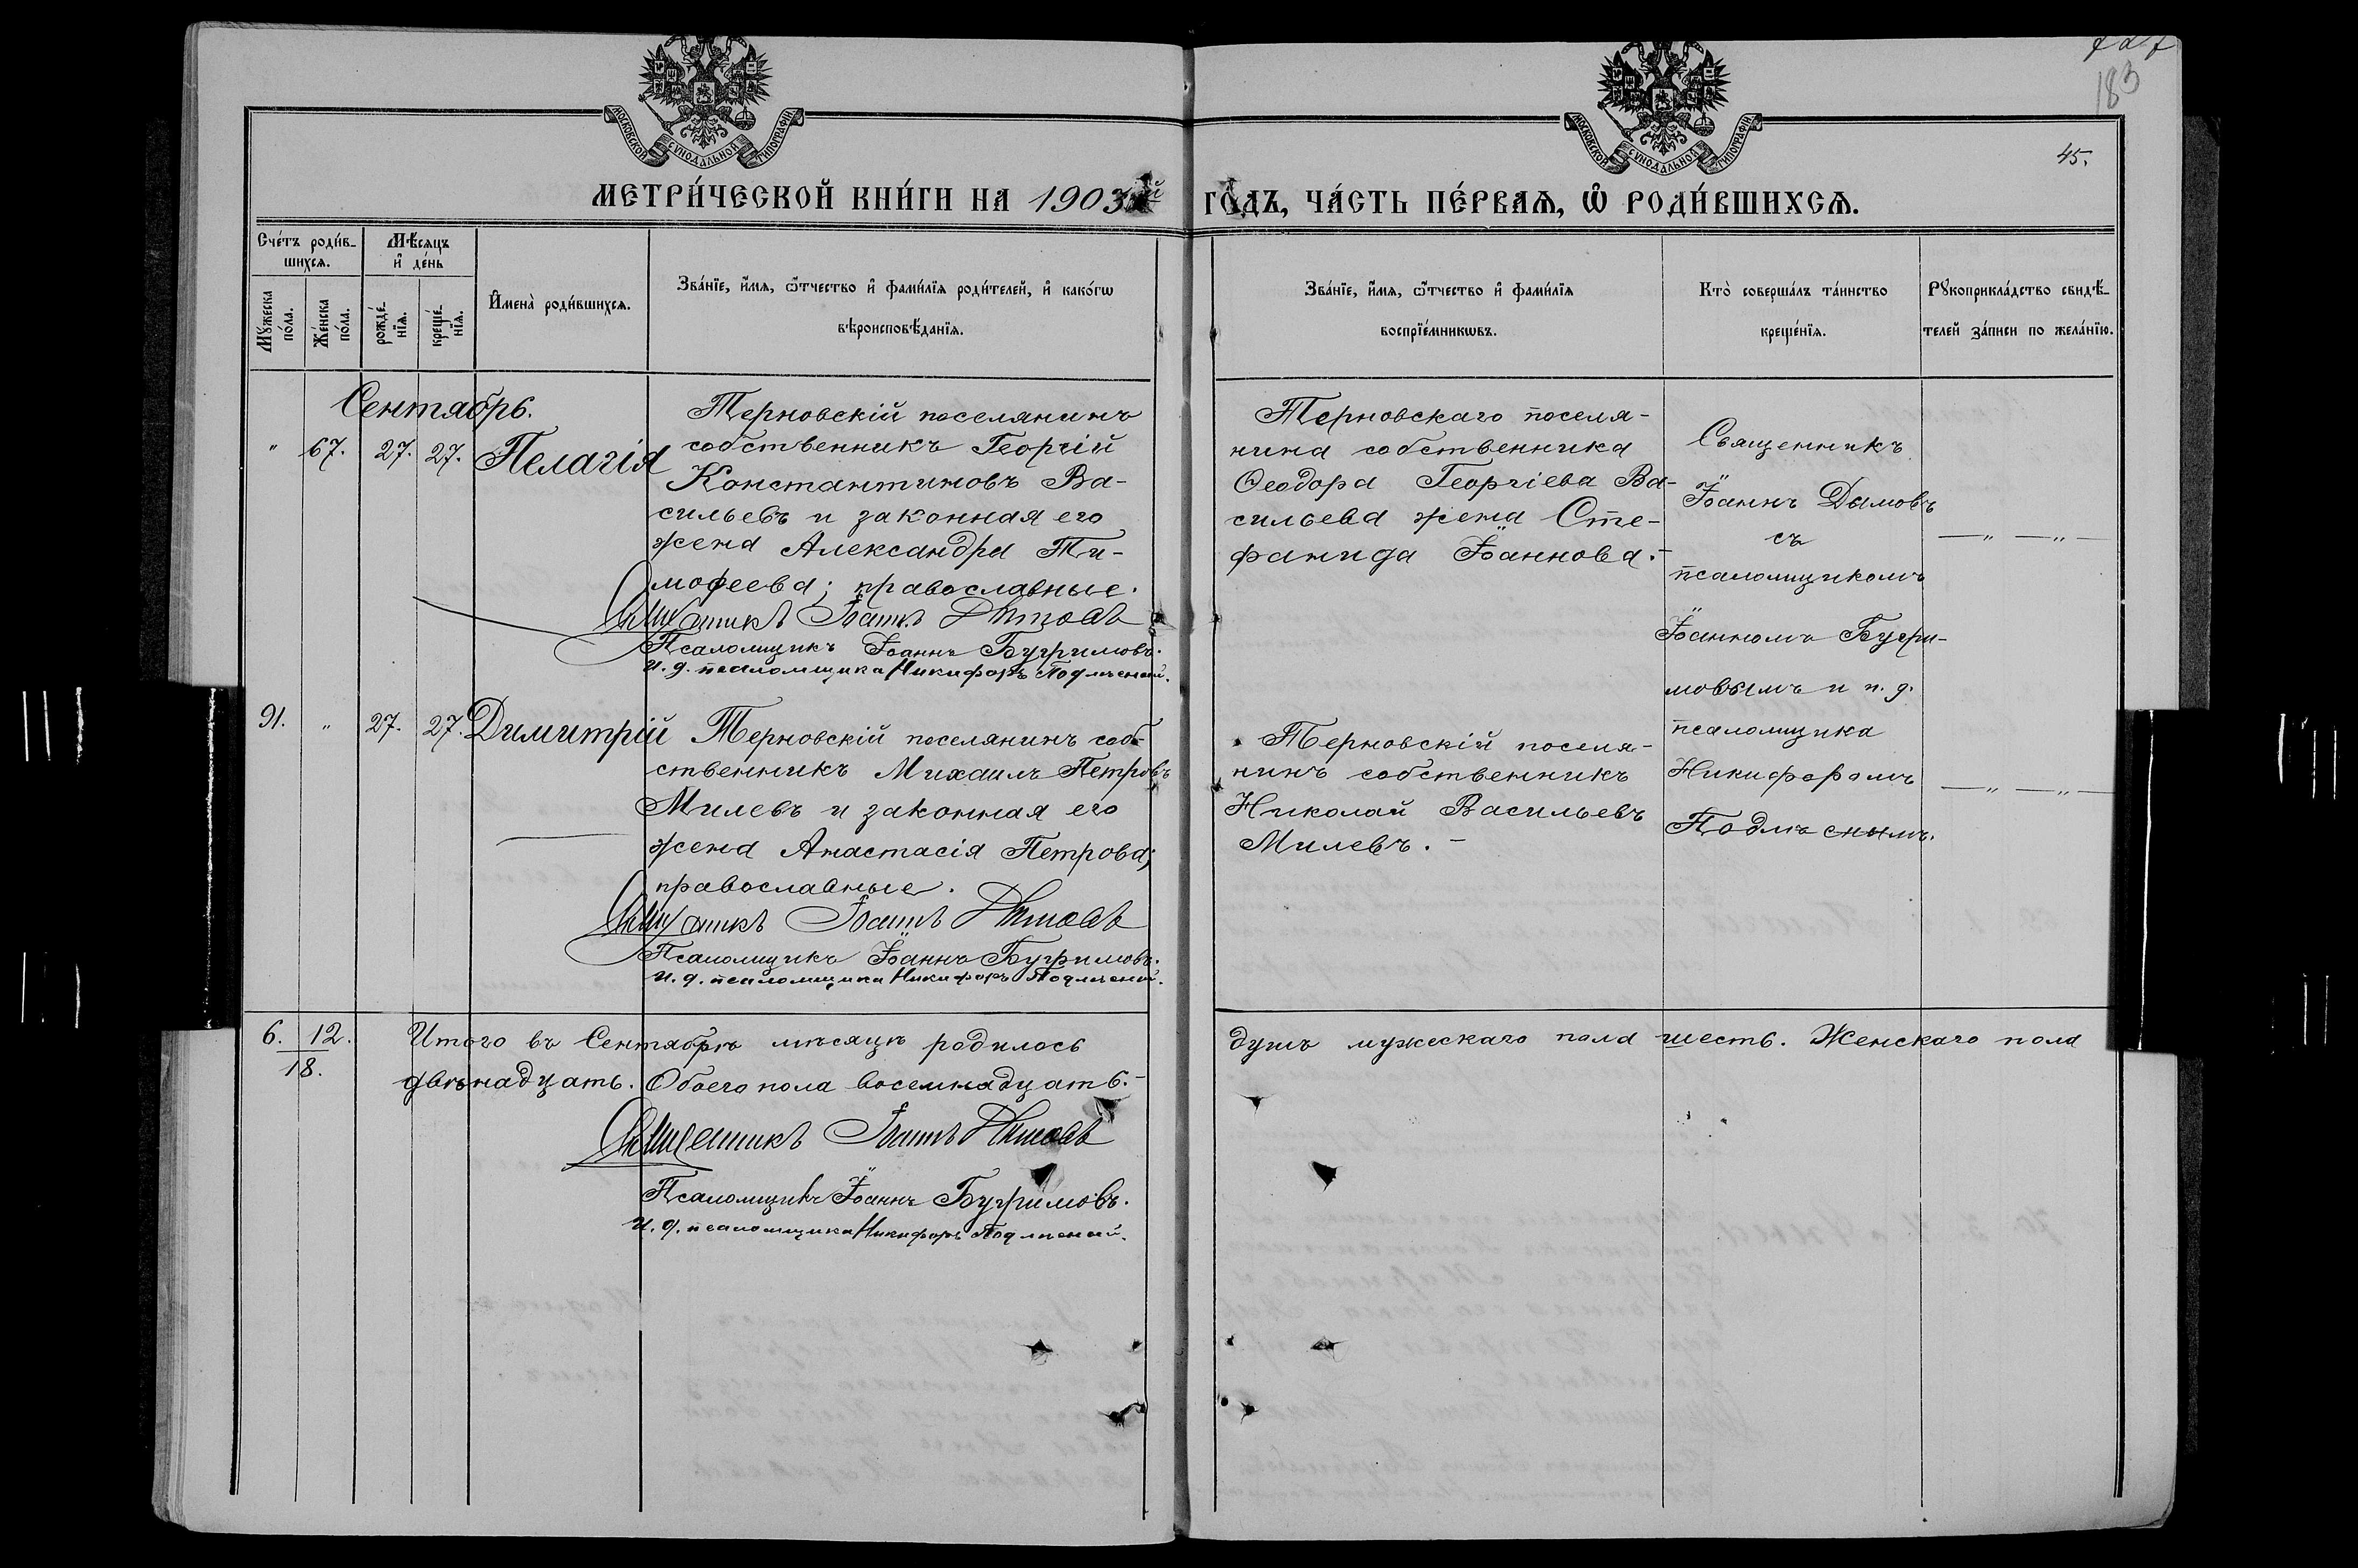 183
45.
МОСКОВСКОЙ СѴНОДАЛЬНОЙ ТИПОГРАФІИ
МОСКОВСКОЙ СѴНОДАЛЬНОЙ ТИПОГРАФІИ
МЕТРИ́ЧЕСКОЙ КНИ́ГИ НА 1903 й ГО́ДЪ, ЧА́СТЬ ПЕ́РВАѦ, Ѡ҆ РОДИ́ВШИХСѦ.
Сче́тъ роди́в-
шихсѧ.
Мꙋ́жеска по́ла.
Же́нска по́ла.
Мѣ́сѧцъ
и҆ де́нь
рожде́-
нїѧ.
креще́-
нїѧ.
И҆мена̀ роди́вшихсѧ.
Зва́нїе, и҆́мѧ, ѻ҆́тчество и҆ фами́лїѧ роди́телей, и҆ како́гѡ
вѣроисповѣ́данїѧ.
Зва́нїе, и҆́мѧ, ѻ҆́тчество и҆ фами́лїѧ
воспрїе́мникѡвъ.
Кто̀ соверша́лъ та́инство
креще́нїѧ.
Рꙋкоприкла́дство свидѣ́-
телей за́писи по жела́нїю.
Сентябрь.
" 67. 27. 27. Пелагія
Терновскій поселянинъ
собственникъ Георгій
Константиновъ Ва-
сильевъ и законная его
жена Александра Ти-
моѳеева; православные.
Священникъ Іоаннъ Димовъ
Псаломщикъ Іоаннъ Бугримовъ.
И. д. псаломщика Никифоръ Подлѣсный.
Терновскаго поселя-
нина собственника
Ѳеодора Георгіева Ва-
сильева жена Сте-
фанида Іоаннова.-
Священникъ
Іоаннъ Димовъ
съ
псаломщикомъ
Іоанномъ Бугри-
мовымъ и и. д.
псаломщика
Никифоромъ
Подлѣснымъ.
— " — " —
91. " 27. 27. Димитрій
Терновскій поселянинъ соб-
ственникъ Михаилъ Петровъ
Милевъ и законная его
жена Анастасія Петрова;
православные.
Священникъ Іоаннъ Димовъ
Псаломщикъ Іоаннъ Бугримовъ.
И. д. псаломщика Никифоръ Подлѣсный.
Терновскій поселя-
нинъ собственникъ
Николай Васильевъ
Милевъ.-
— " — " —
6. 12. Итого въ Сентябрѣ мѣсяцѣ родилось душъ мужескаго пола шесть. Женскаго пола
18. двѣнадцать. Обоего пола восемнадцать.-
Священникъ Іоаннъ Димовъ
Псаломщикъ Іоаннъ Бугримовъ.
И. д. псаломщика Никифоръ Подлѣсный.